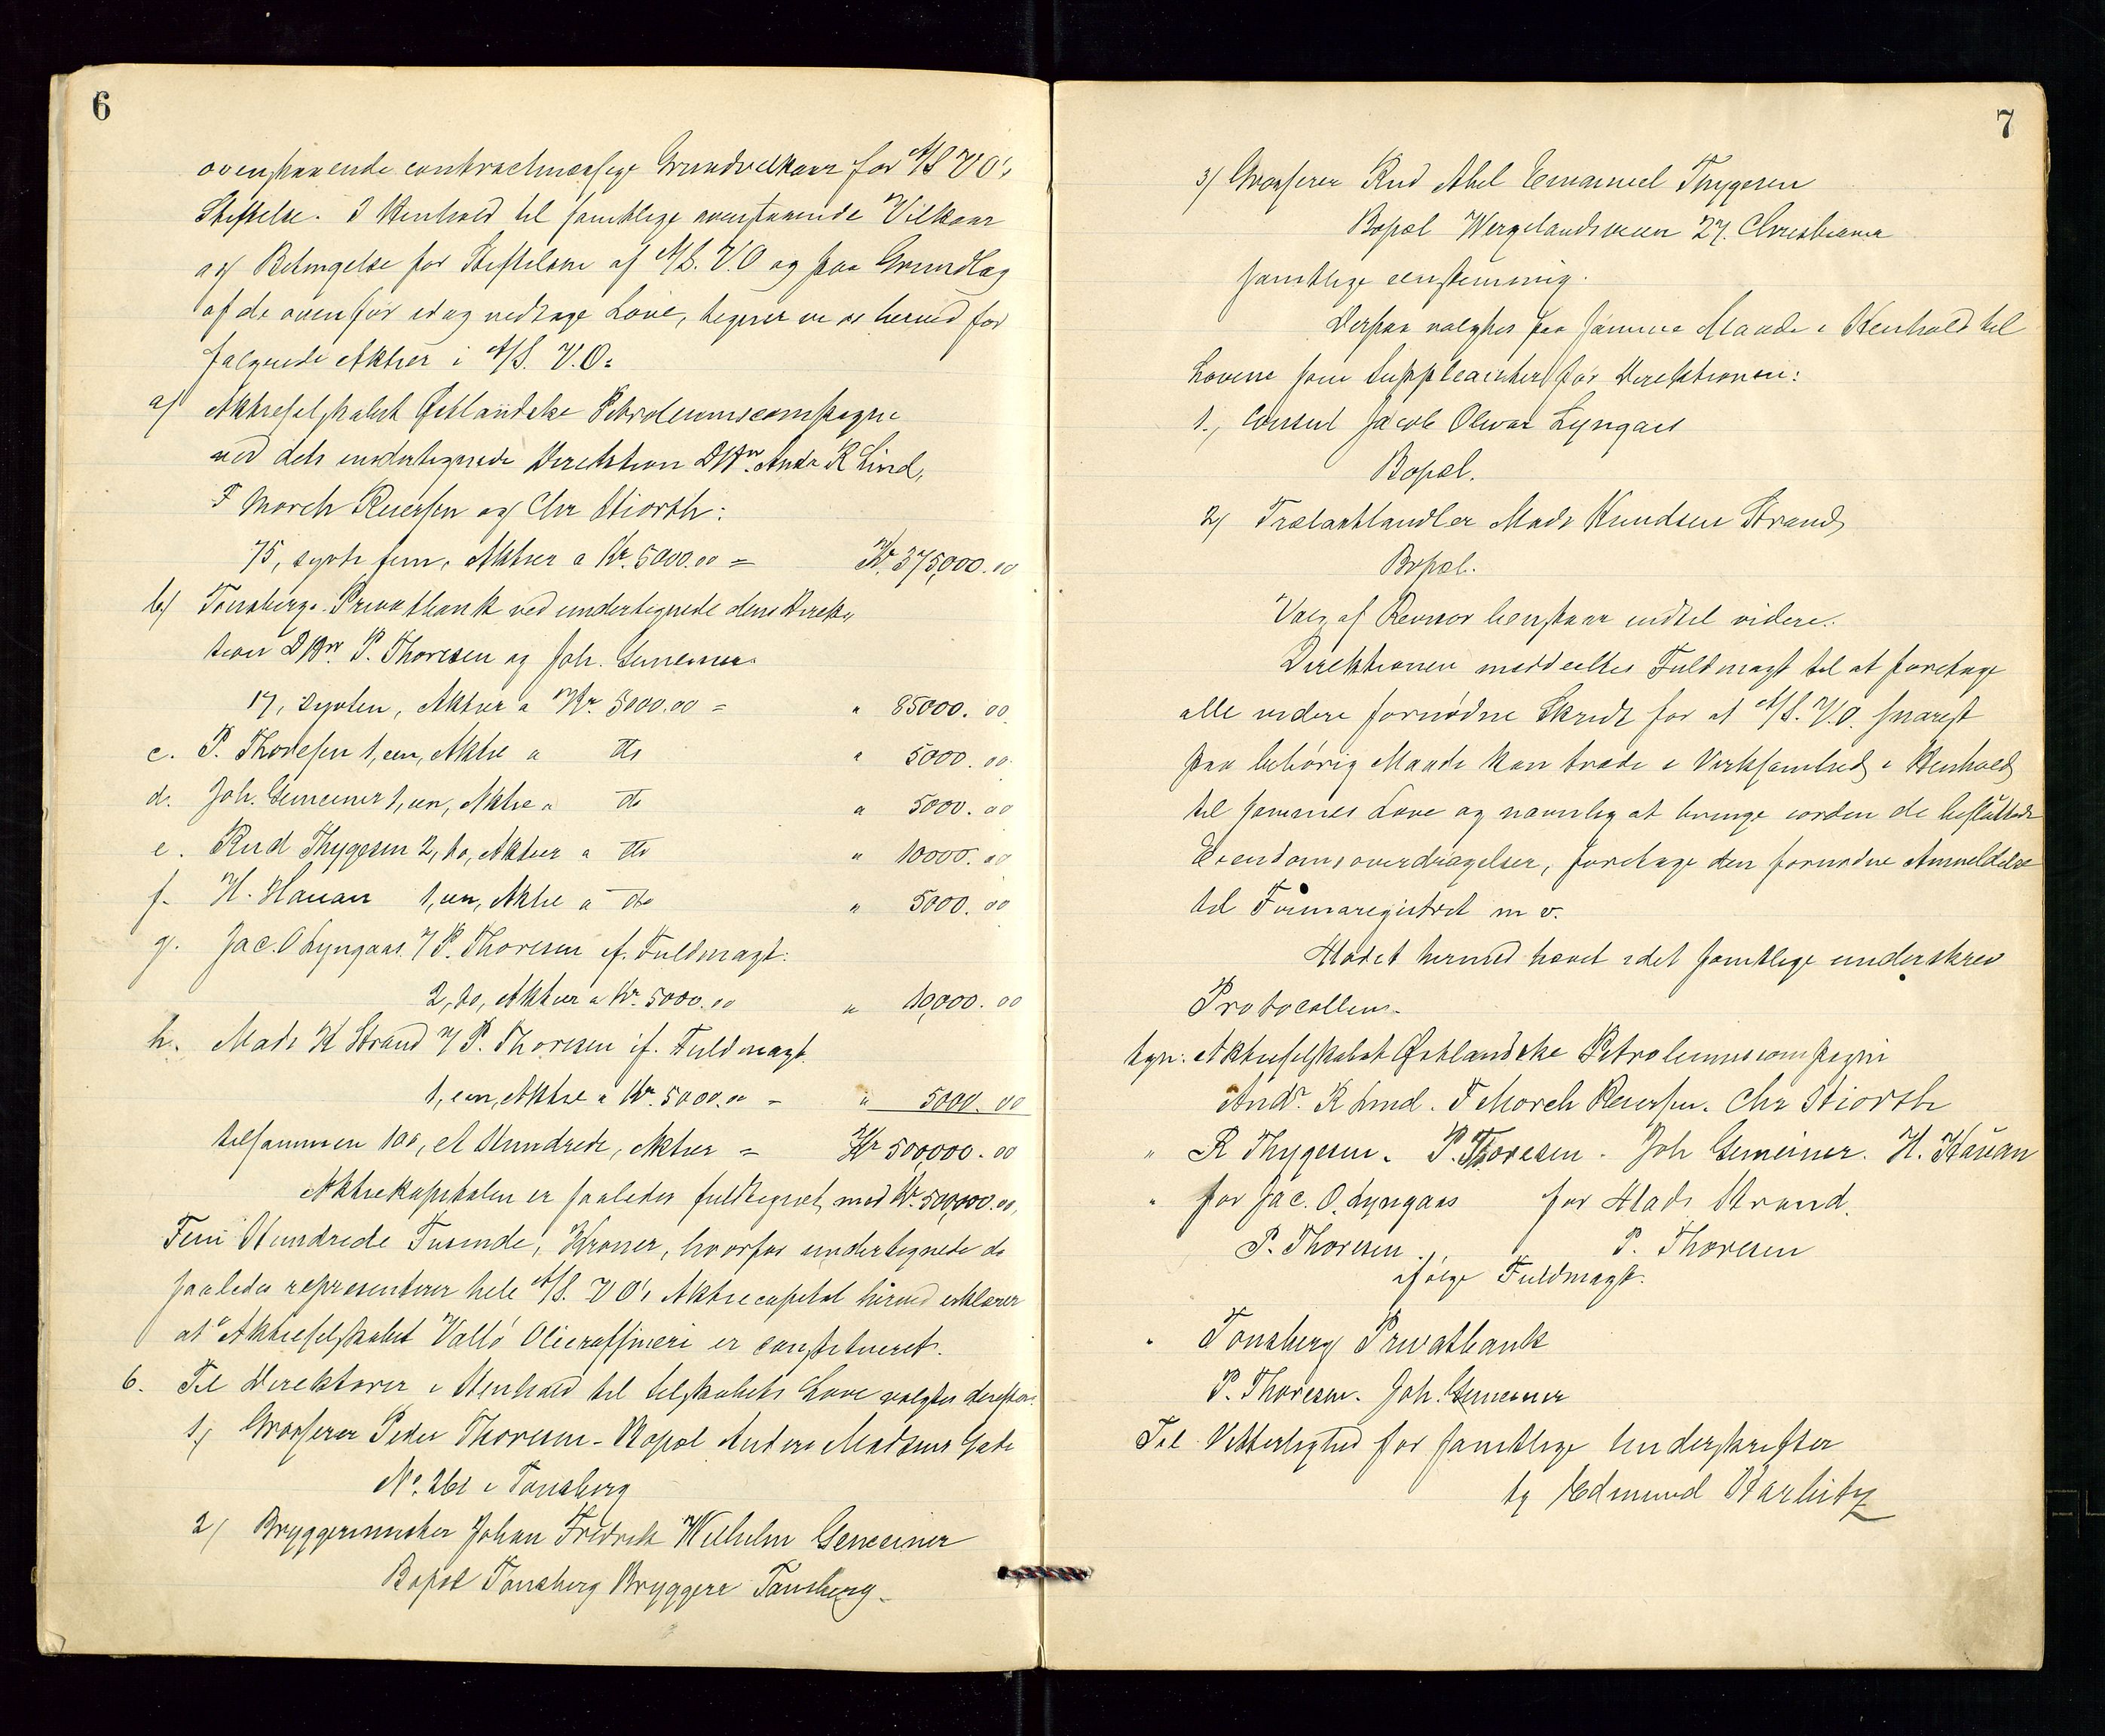 6
ovenstaaende contractmæssige Grundvilkaar for A/S V O's
Stiftelse. I Henhold til samtlige ovenstaaende Vilkaar
og Betingelse for Stiftelsen af A/S. V.O og paa Grundlag
af de ovenfor idag vedtagne Love, tegner vi os herved for
følgende Aktier i A/S. V.O:
a) Aktieselskabet Østlandske Petroleumscompagni
ved dets undertegnede Direktion DHrr. Andr K Lind,
F Morch Reiersen og Chr Stiorth:
75, sytti fem, Aktier a Kr. 5000.00 = Kr. 375,000.00
b) Tønsbergs Privatbank ved undertegnede dens Direk-
tion DHrr. P. Thoresen og Joh. Gemeiner
17, sytten, Aktier a Kr. 5000.00 = " 85000.00
c. P. Thoresen 1, een, Aktie a do " 5000.00
d. Joh. Gemeiner 1, en, Aktie a do " 5000.00
e. Rud Thygesen 2, to, Aktier a do " 10000.00
f. H. Hauan 1, een, Aktie a do " 5000.00
g. Jac. O Lyngaas. v/ P. Thoresen if. Fuldmagt:
2, to, Aktier a Kr. 5000.00 " 10,000.00
h. Mads K Strand v/ P. Thoresen if. Fuldmagt.
1, een, Aktie a Kr. 5000.00 = " 5000.00
tilsammen 100, et Hundrede, Aktier = Kr 500,000.00
Aktiekapitalen er saaledes fuldtegnet med Kr. 500,000.00,
Fem Hundrede Tusinde, Kroner, hvorfor undertegnede de
saaledes representerer hele A/S. V O's Aktiecapital herved erklærer
at "Aktieselskabet Vallö Olieraffineri er constitueret.
6. Til Direktører i Henhold til selskabets Love valgtes derefter:
1) Grosserer Peder Thoresen - Bopæl Anders Madsens Gade
No. 261 i Tønsberg
2) Bryggerimester Johan Fredrik Wilhelm Gemeiner
Bopæl Tønsberg Bryggeri Tønsberg.
7
3) Grosserer Rud Abel Emanuel Thygesen
Bopæl Wergelandsveien 27. Christiania
samtlige eenstemmig.
Derpaa valgtes paa samme Maade i Henhold til
Lovene som Suppleanter for Direktionen:
1., Consul Jacob Olivar Lyngaas
Bopæl.
2) Trælasthandler Mads Knudsen Strand
Bopæl.
Valg af Revisor henstaar indtil videre.
Direktionen meddeeltes Fuldmagt til at foretage
alle videre fornødne Skridt for at A/S. V.O. snarest
paa behörig Maade kan træde i Virksomhed i Henhold
til sammes Love og navnlig at bringe iorden de besluttede
Eiendomsoverdragelser, foretage den fornødne Anmeldelse
til Firmaregistret m v.
Mødet hermed hævet idet samtlige underskrev
Protocollen.
tgn: Aktieselskabet Østlandske Petroleumscompagni
Andr. K Lind. F Morch Reiersen. Chr Stiorth
" R Thygesen. P. Thoresen. Joh Gemeiner. H. Hauan
" for Jac. O. Lyngaas for Mads Strand.
P. Thoresen P. Thoresen
ifølge Fuldmagt.
" Tonsberg Privatbank
P. Thoresen. Joh. Gemeiner
Til Vitterlighed for samtlige Underskrifter
tg Edmund Harbitz